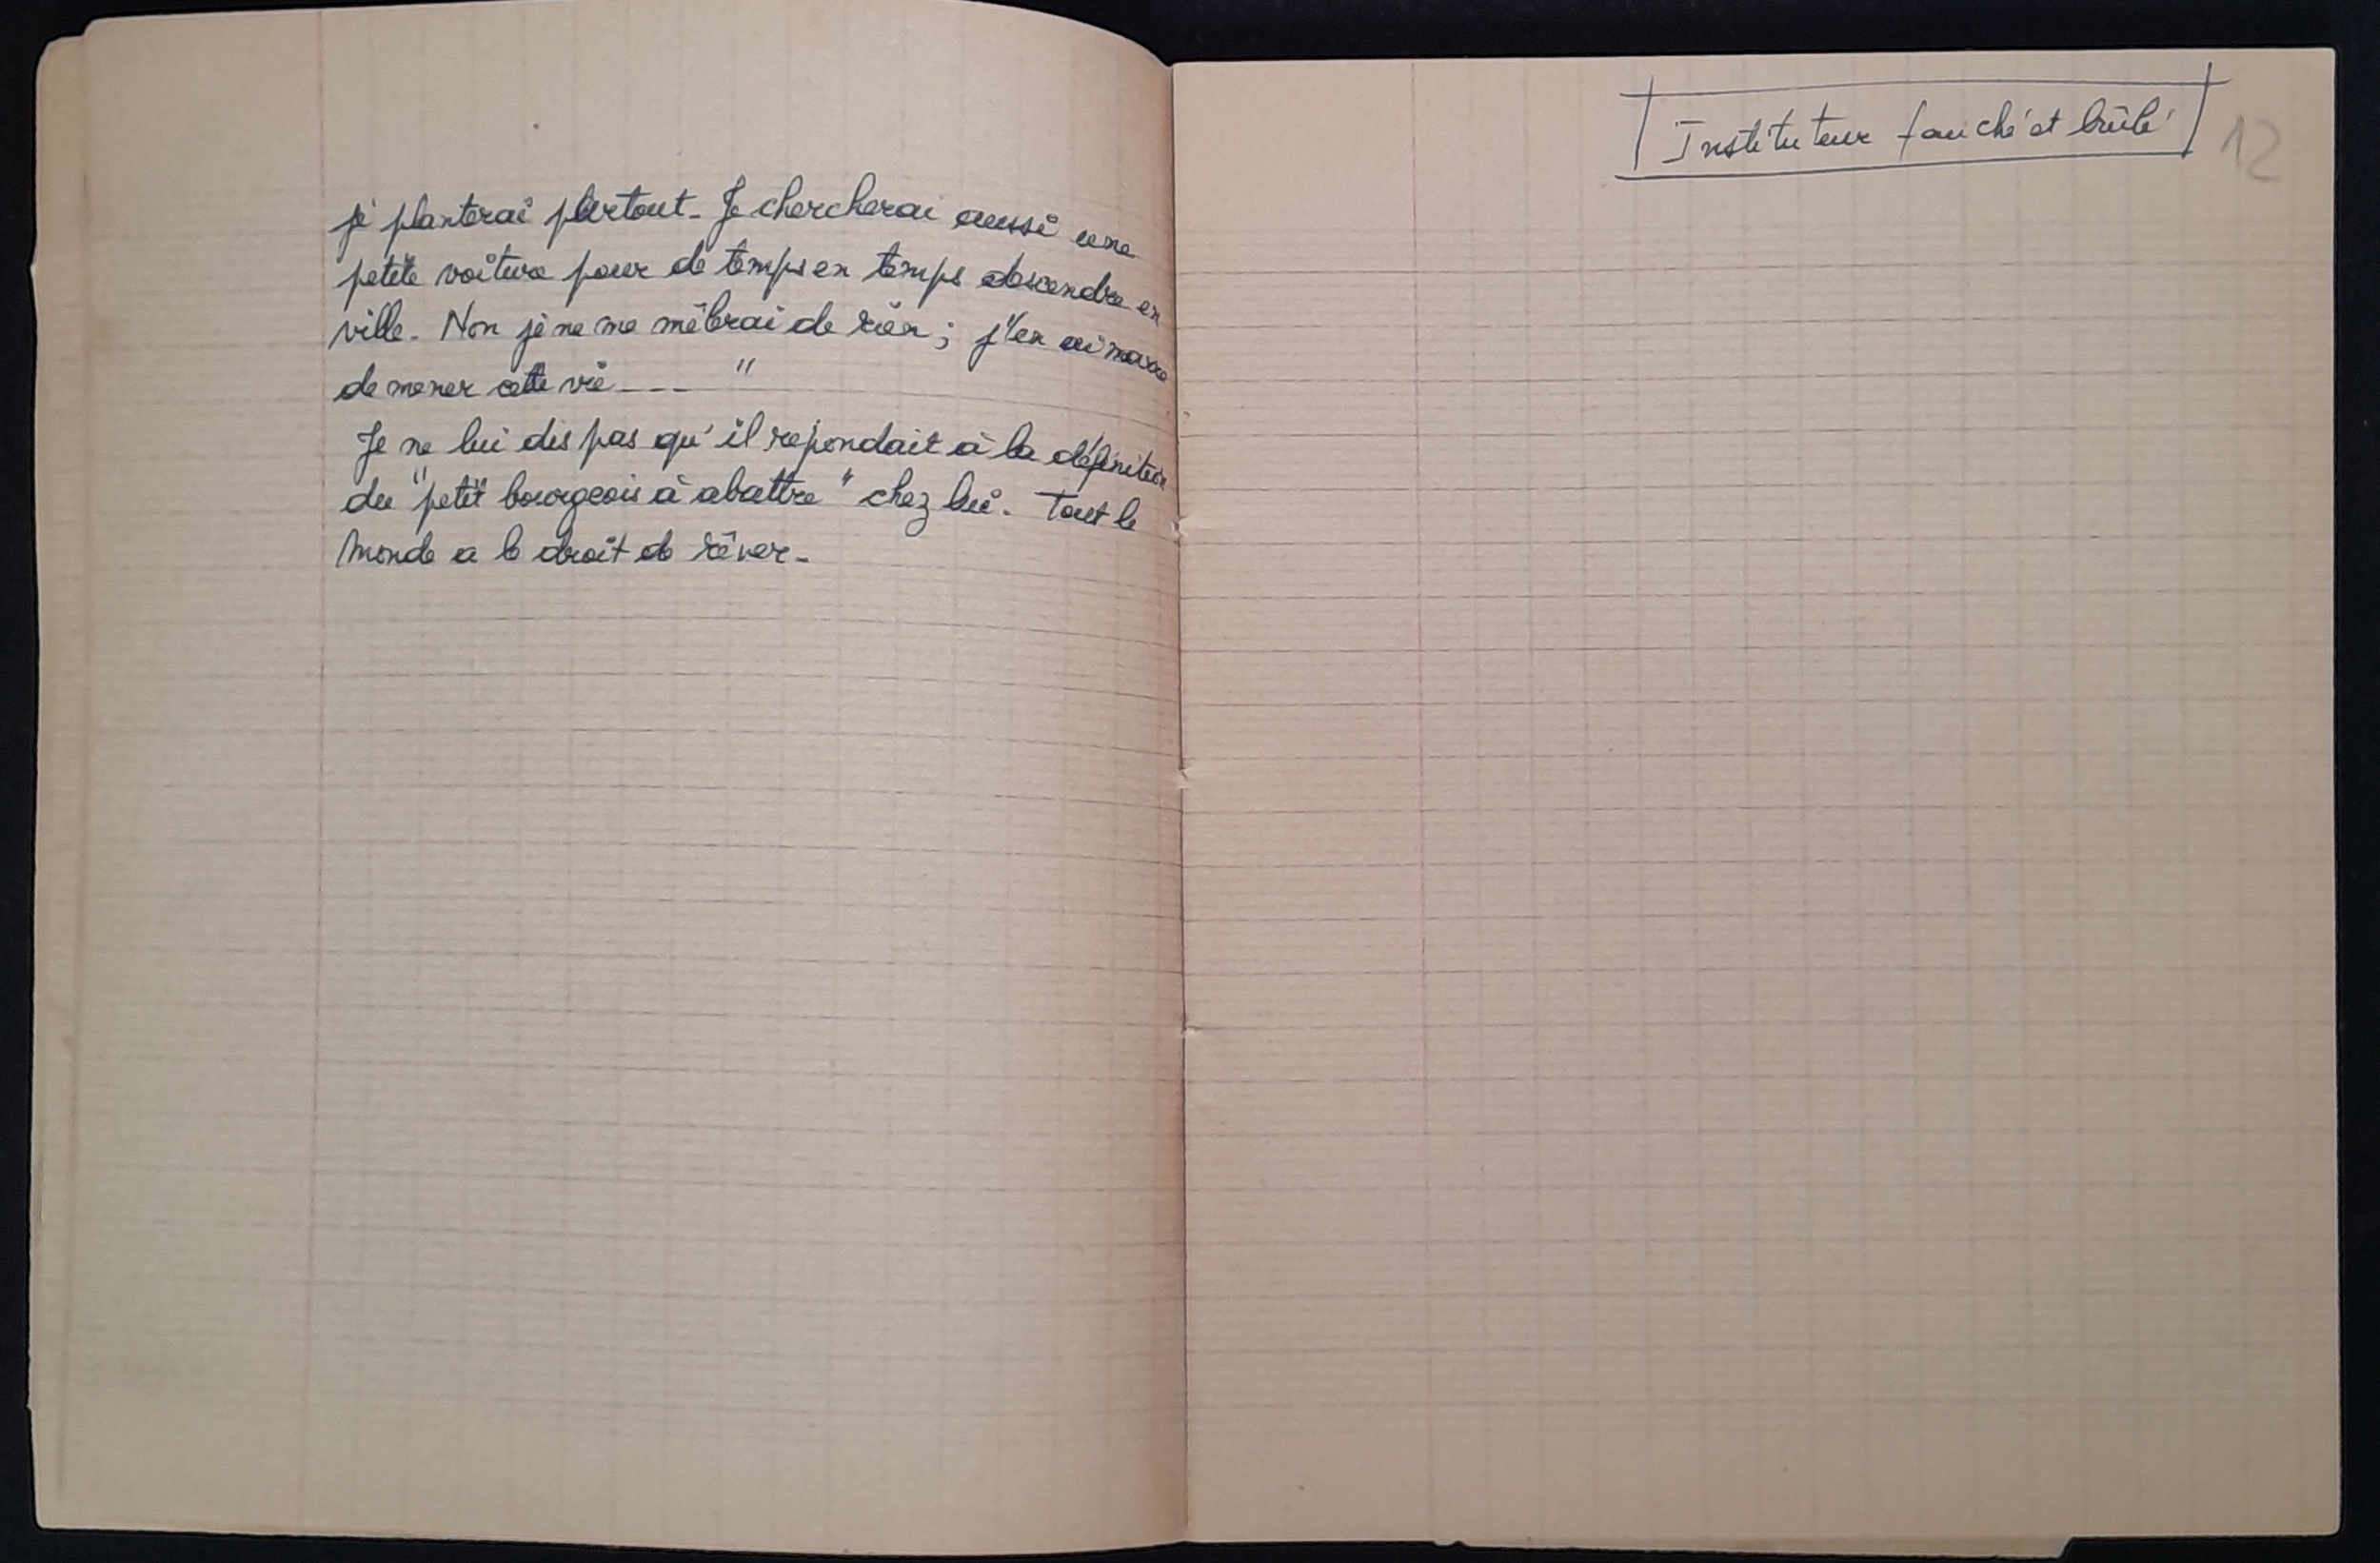 je planterai partout. Je chercherai aussi une
petite voiture pour de temps en temps descendre en
ville. Non je ne me mêlerai de rien ; j'en ai marre
de mener cette vie --- "
Je ne lui dis pas qu'il repondait à la définition
du "petit bourgeois à abattre" chez lui. Tout le
monde a le droit de rêver.
Instituteur fauché et brûlé
12